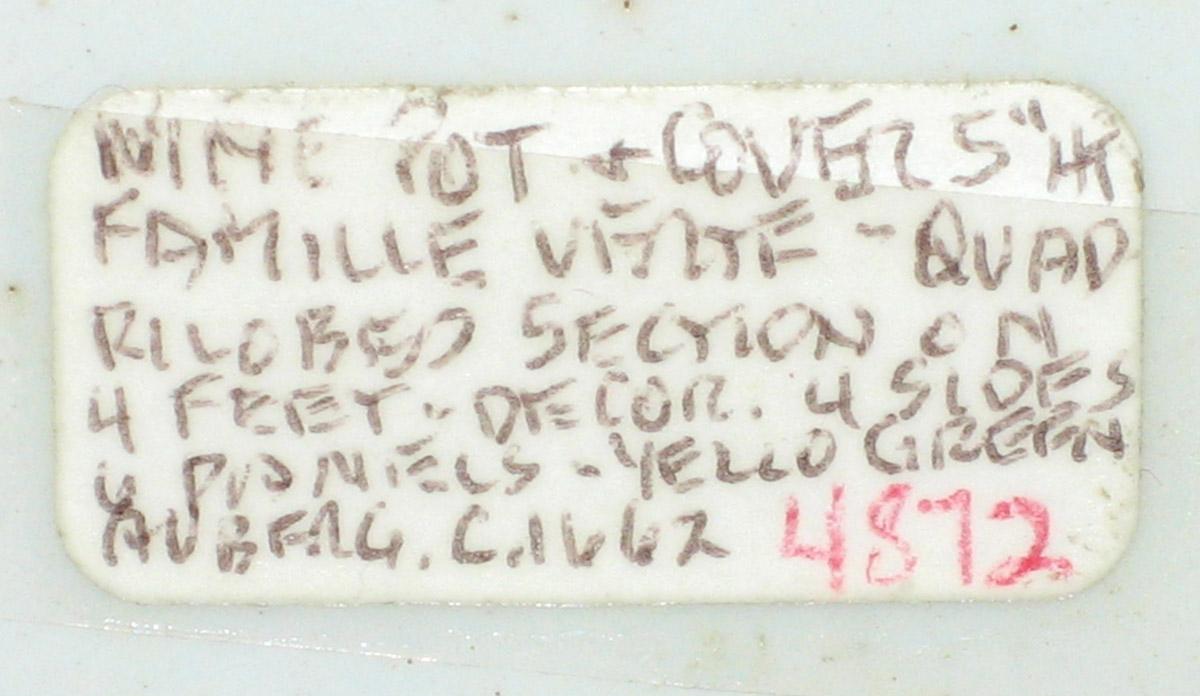 WINE POT + COVER 5" HT
FAMILLE VERTE - QUAD
RILOBED SECTION ON
4 FEET - DECOR. 4 SIDES
4 PANELS - YELLO GREEN
AUBERG. C.1662 4872